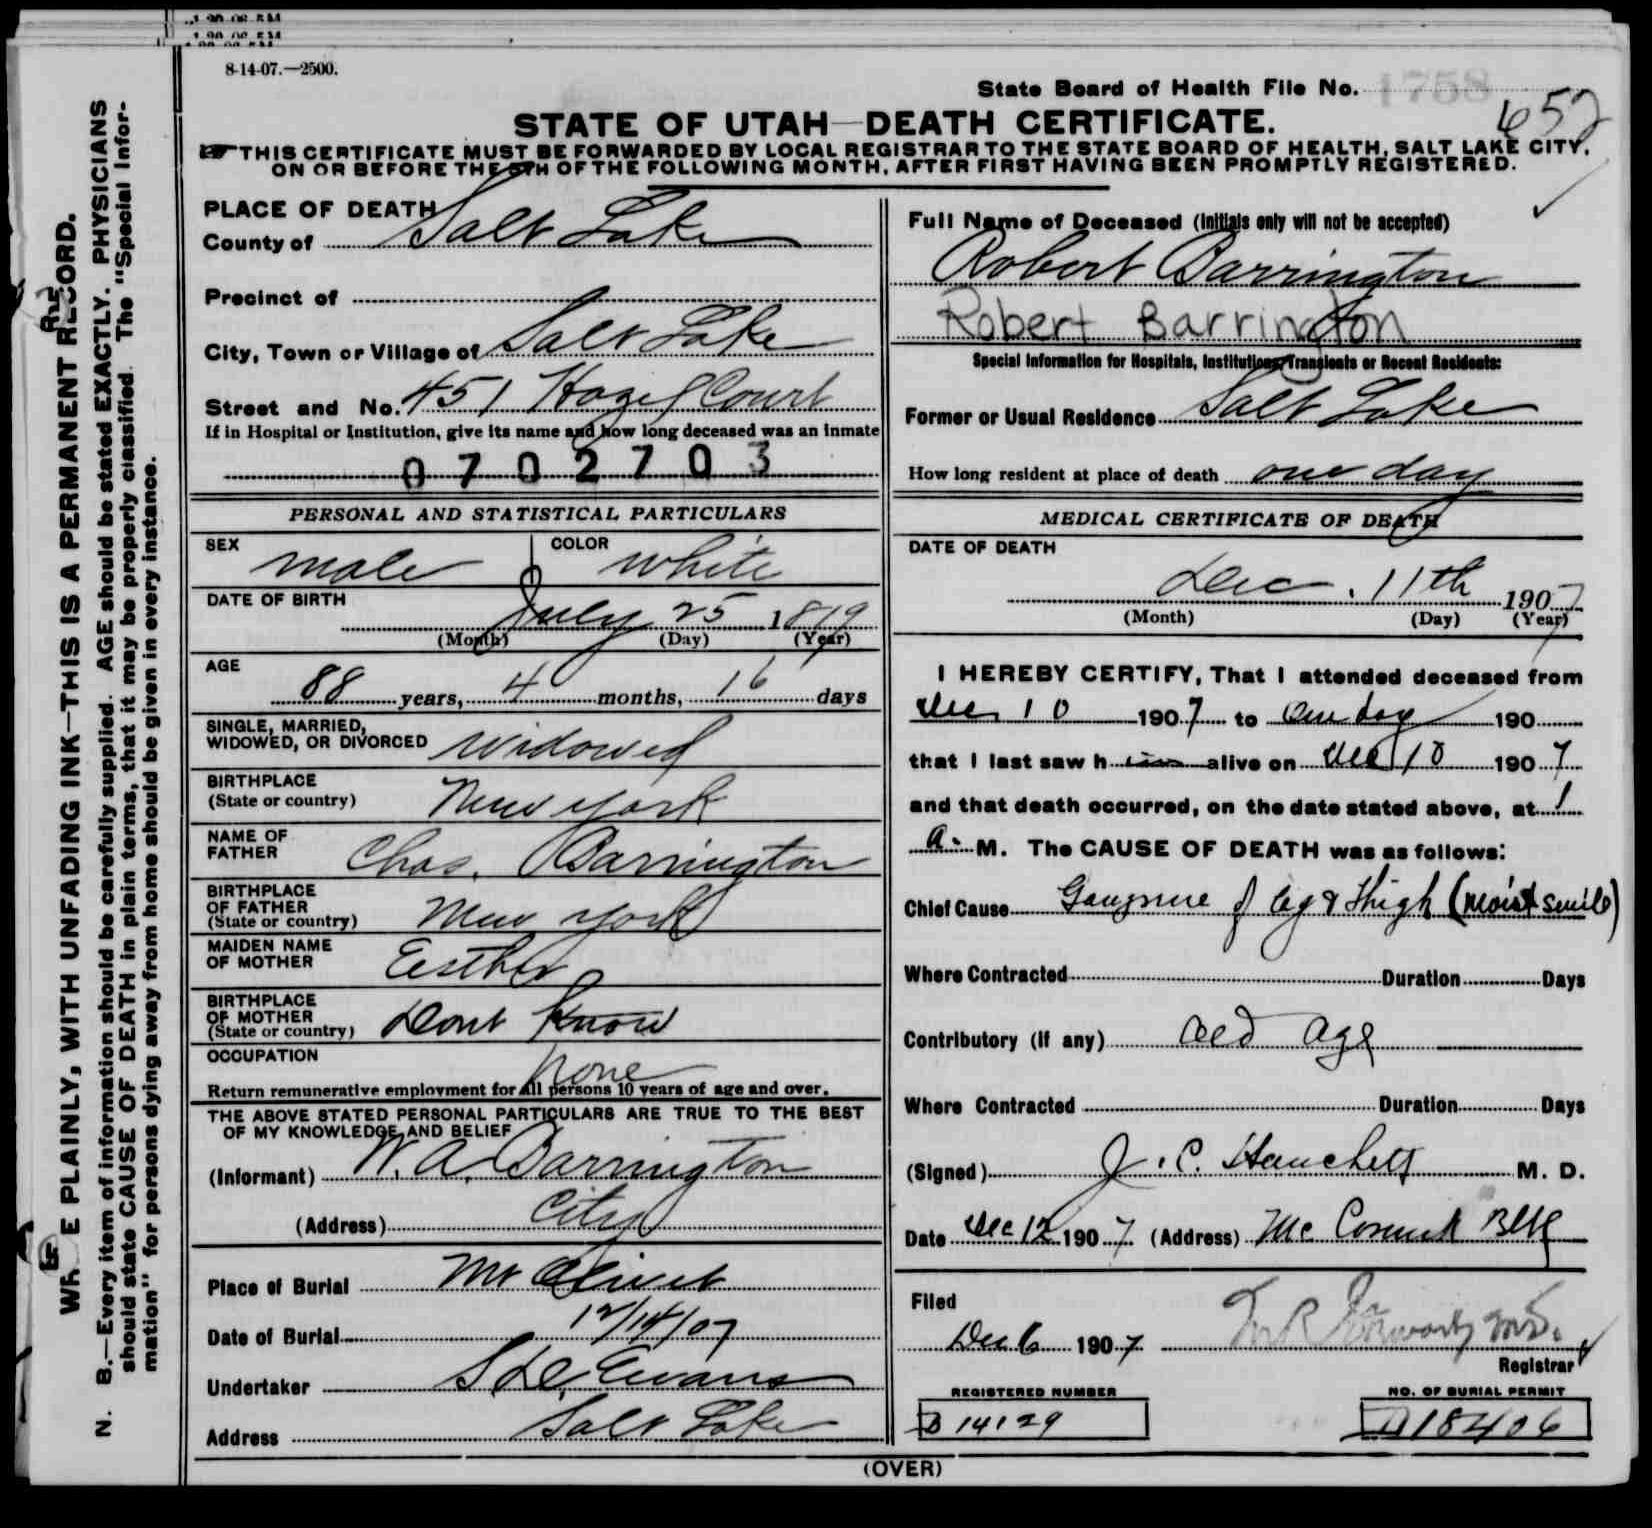 8-14-07.—2500.
State Board of Health File No. 1758
652
STATE OF UTAH—DEATH CERTIFICATE.
THIS CERTIFICATE MUST BE FORWARDED BY LOCAL REGISTRAR TO THE STATE BOARD OF HEALTH, SALT LAKE CITY,
ON OR BEFORE THE 5TH OF THE FOLLOWING MONTH, AFTER FIRST HAVING BEEN PROMPTLY REGISTERED.
WRITE PLAINLY, WITH UNFADING INK—THIS IS A PERMANENT RECORD.
N. B.—Every item of information should be carefully supplied. AGE should be stated EXACTLY. PHYSICIANS
should state CAUSE OF DEATH in plain terms, that it may be properly classified. The "Special Infor-
mation" for persons dying away from home should be given in every instance.
PLACE OF DEATH
County of Salt Lake
Precinct of
City, Town or Village of Salt Lake
Street and No. 451 Hazel Court
If in Hospital or Institution, give its name and how long deceased was an inmate
0702703
PERSONAL AND STATISTICAL PARTICULARS
SEX male COLOR white
DATE OF BIRTH July 25 1819
(Month) (Day) (Year)
AGE 88 years, 4 months, 16 days
SINGLE, MARRIED,
WIDOWED, OR DIVORCED widowed
BIRTHPLACE
(State or country) New York
NAME OF
FATHER Chas. Barrington
BIRTHPLACE
OF FATHER
(State or country) New York
MAIDEN NAME
OF MOTHER Eesther
BIRTHPLACE
OF MOTHER
(State or country) Dont Know
OCCUPATION none
Return remunerative employment for all persons 10 years of age and over.
THE ABOVE STATED PERSONAL PARTICULARS ARE TRUE TO THE BEST
OF MY KNOWLEDGE AND BELIEF
(Informant) W. A. Barrington
(Address) City
Place of Burial Mt Olivet
Date of Burial 12/14/07
Undertaker S. D. Evans
Address Salt Lake
Full Name of Deceased (Initials only will not be accepted)
Robert Barrington
Robert Barrington
Special Information for Hospitals, Institutions, Transients or Recent Residents:
Former or Usual Residence Salt Lake
How long resident at place of death one day
MEDICAL CERTIFICATE OF DEATH
DATE OF DEATH
Dec. 11th 1907
(Month) (Day) (Year)
I HEREBY CERTIFY, That I attended deceased from
Dec 10 1907 to One day 190
that I last saw him alive on Dec 10 1907
and that death occurred, on the date stated above, at 1
a. M. The CAUSE OF DEATH was as follows:
Chief Cause Gangrene of leg & thigh (moist senile)
Where Contracted Duration Days
Contributory (if any) old age
Where Contracted Duration Days
(Signed) J. C. Hanchett M. D.
Date Dec 12 1907 (Address) McCornick Blk
Filed
Dec 6 1907
Registrar
REGISTERED NUMBER
B 14129
NO. OF BURIAL PERMIT
18406
(OVER)